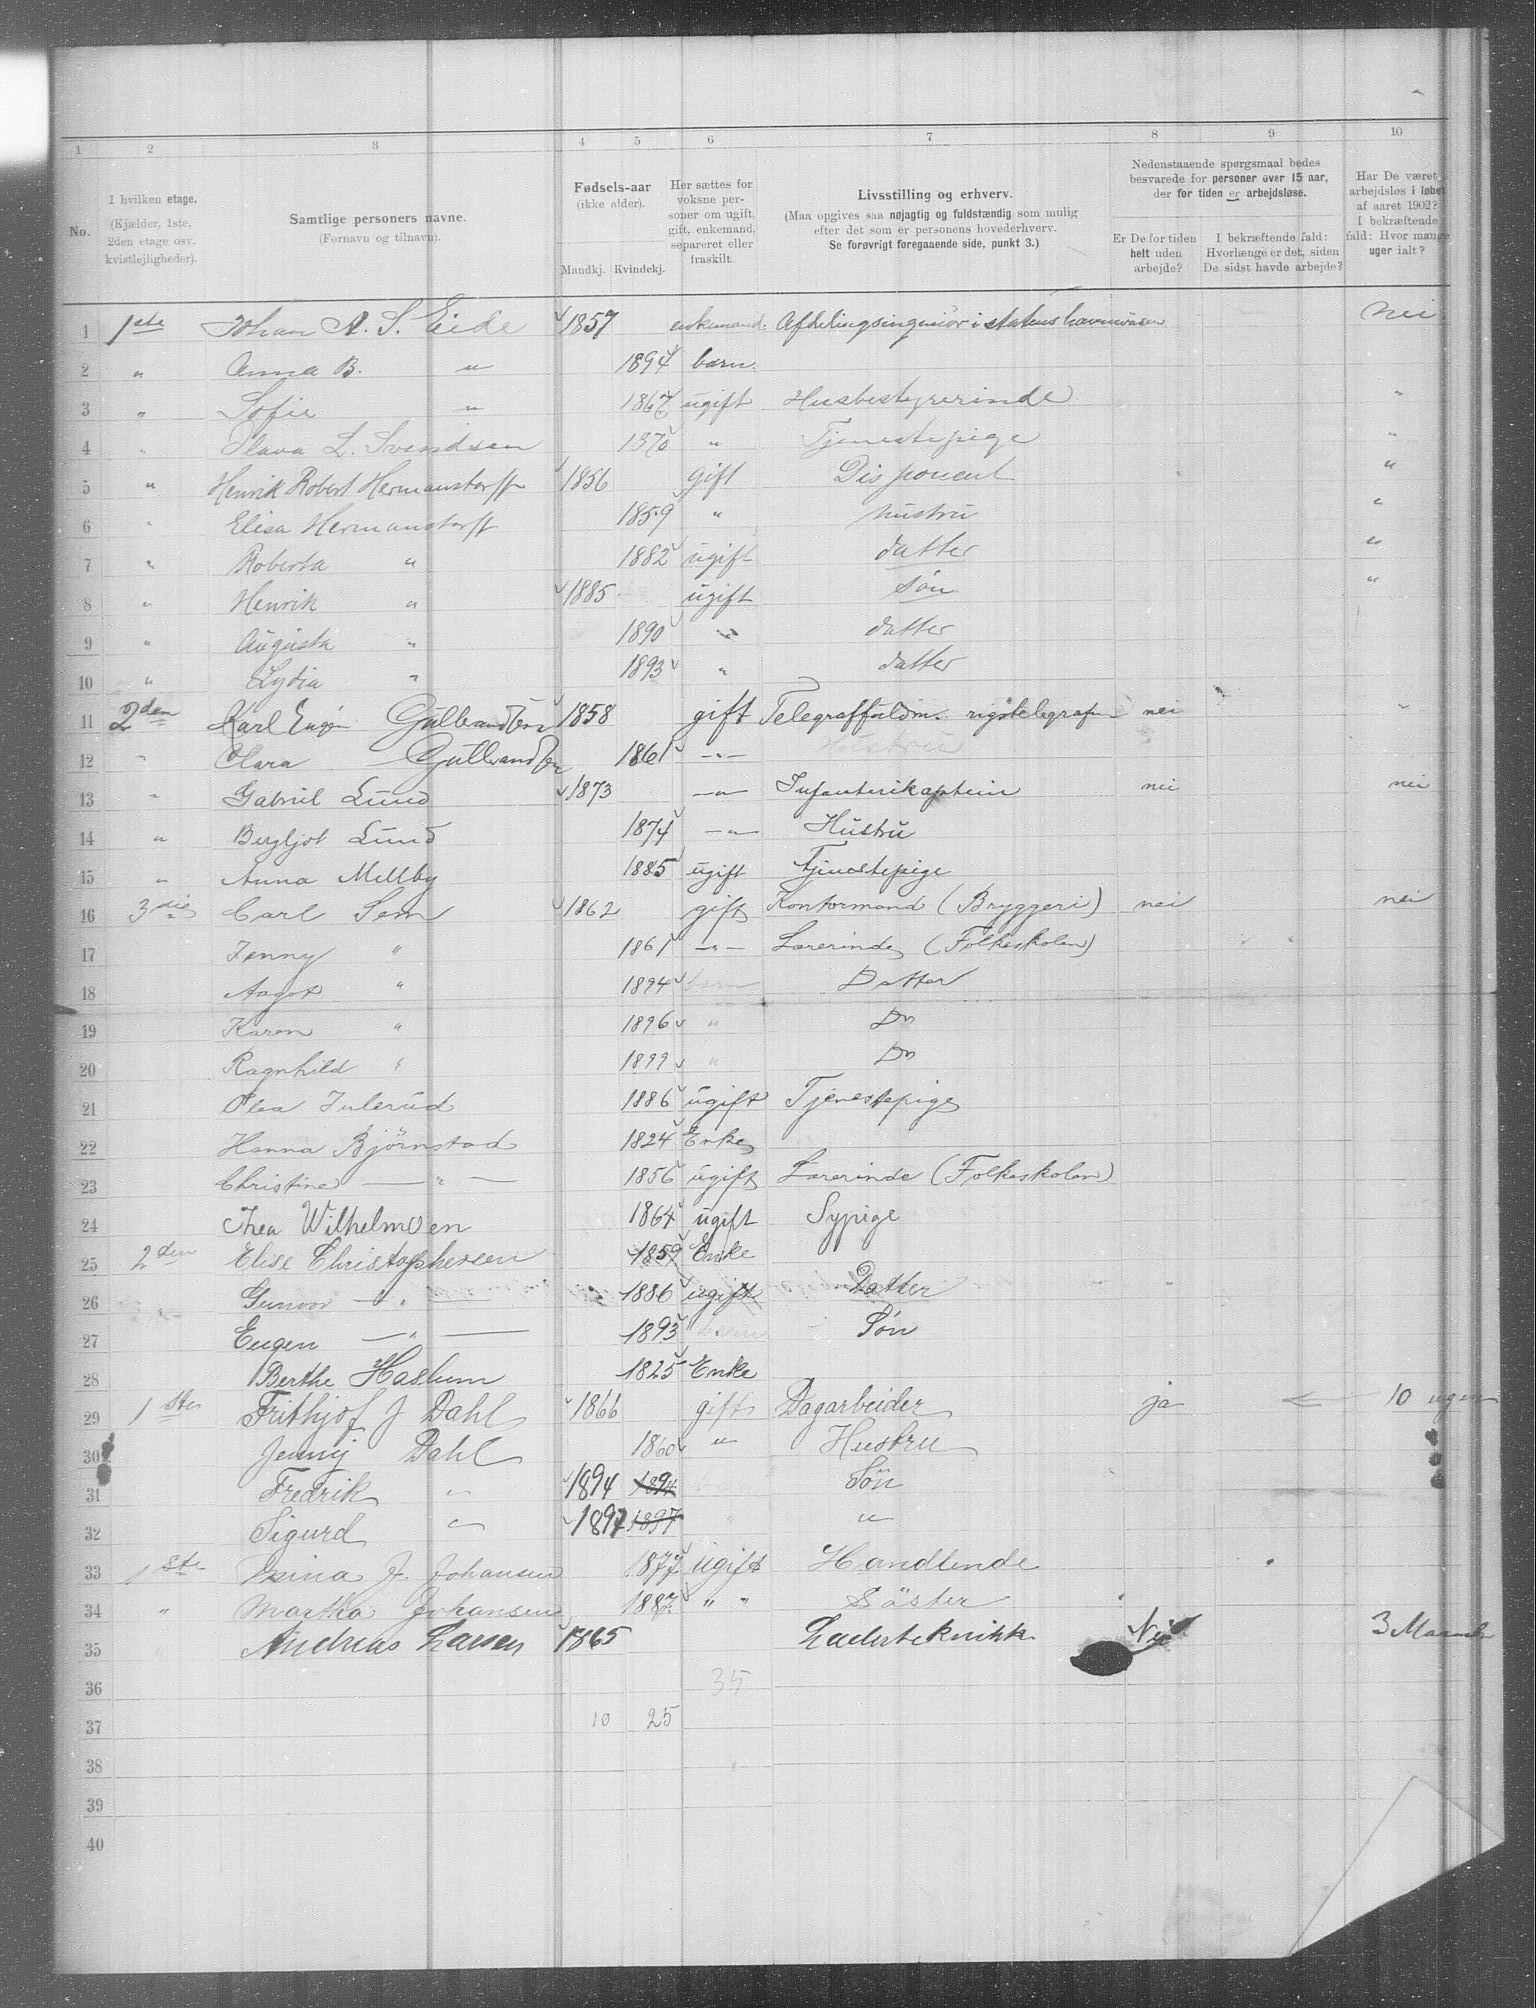 1 2 3 4 5 6 7 8 9 10
No.
I hvilken etage.
(Kjælder, 1ste,
2den etage osv.
kvistlejligheder).
Samtlige personers navne.
(Fornavn og tilnavn).
Fødsels-aar
(ikke alder).
Mandkj. Kvindekj.
Her sættes for
voksne per-
soner om ugift,
gift, enkemand,
separeret eller
fraskilt.
Livsstilling og erhverv.
(Maa opgives saa nøjagtig og fuldstændig som mulig
efter det som er personens hovederhverv.
Se forøvrigt foregaaende side, punkt 3.)
Nedenstaaende spørgsmaal bedes
besvarede for personer over 15 aar,
der for tiden er arbejdsløse.
Er De for tiden
helt uden
arbejde?
I bekræftende fald:
Hvorlænge er det, siden
De sidst havde arbejde?
Har De været
arbejdsløs i løbet
af aaret 1902?
I bekræftende
fald: Hvor mange
uger ialt?
1 1ste Johan A. S. Eide 1857 enkemand. Afdelingsingeniør i statens havnevæsen nei
2 " Anna B. " 1894 barn.
3 " Sofie " 1867 ugift Husbestyrerinde "
4 " L. Svendsen 1870 " Tjenestepige "
5 " Henrik Robert Hermanstorff 1856 gift Disponent "
6 " Elisa Hermanstorff 1859 " hustru "
7 " Roberta " 1882 ugift datter "
8 " Henrik " 1885 ugift søn "
9 " Augusta " 1890 " datter
10 " Lydia " 1893 " datter
11 2den Karl Eugen Gulbrandsen 1858 gift Telegraffuldm. rigstelegrafen nei "
12 " Clara Gulbrandsen 1861 " Hustru
13 " Gabriel Lund 1873 " Infanterikaptein nei nei
14 " Bergljot Lund 1874 " Hustru
15 " Anna Mellby 1885 ugift Tjenestepige
16 3die Carl Sem 1862 gift Kontormand (Bryggeri) nei nei
17 Jenny " 1861 " Lærerinde (Folkeskolen)
18 Aagot " 1894 barn Datter
19 Karen " 1896 " Do
20 Ragnhild " 1899 " Do
21 Olea Julerud 1886 ugift Tjenestepige
22 Hanna Bjørnstad 1824 Enke
23 Christine " 1856 ugift Lærerinde (Folkeskolen)
24 Thea Wilhelmsen 1864 ugift Sypige
25 2den Elise Christophersen 1859 Enke
26 " Gunvor " 1886 ugift Datter
27 Eugen " 1893 barn Søn
28 Berthe Haslum 1825 Enke
29 1ste Frithjof J Dahl 1866 gift Dagarbeider ja 10 uger
30 Jenny Dahl 1860 " Hustru
31 Fredrik " 1894 1894 Søn
32 Sigurd " 1897 1897 " "
33 1ste J. Johansen 1877 ugift Handlende
34 " Martha Johansen 1887 " " Søster
35 Andreas Larsen 1865 Nei 3
36 35
37 10 25
38
39
40